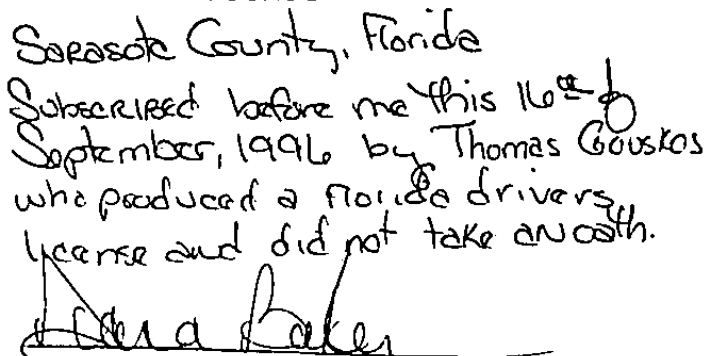 Sarasota County, Florida
Subscribed before me this 16th of
September, 1996 by Thomas Gouskos
who produced a Florida drivers
license and did not take an oath.
Baker